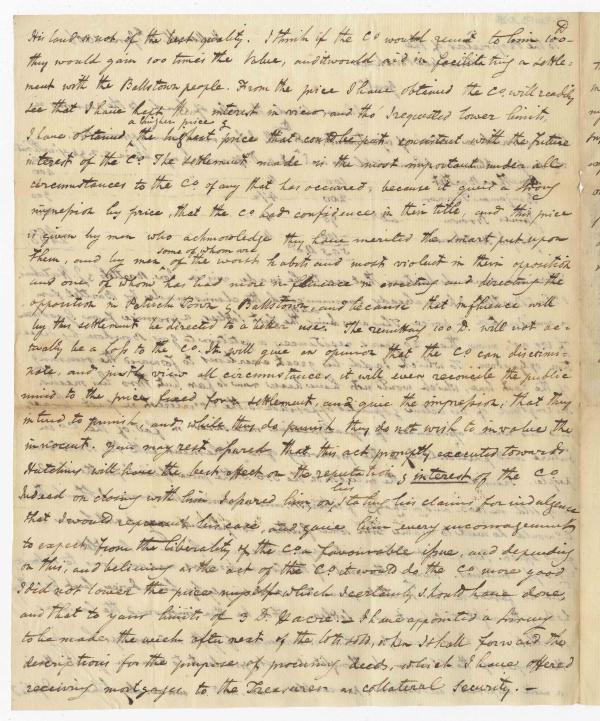 His land is not of the best quality. I think if the Co would remit to him 100 D
they would gain 100 times the Value, and it would aid in facilitating a settle-
ment with the Ballstown people. From the price I have obtained the Co. will readily
see that I have kept the interest in view, and tho' I requested lower limits,
I have obtained a higher price the highest price that could be put consistent with the future
interest of the Co. The settlement made is the most important under all
circumstances to the Co of any that has occured, because it gives a strong
impression by price, that the Co had confidence in their title, and this price
is given by men who acknowledge they have merited the smart put upon
them, and by men some of whom are of the worst habits and most violent in their opposition
and one of whom has had more influence in exciting and directing the
opposition in Patrick Town & Ballstown, and because that influence will
by this settlement be directed to a better use. The remitting 100 D. will not ac-
tually be a loss to the Co. It will give an opinion that the Co can discrimi-
nate, and justly view all circumstances, it will even reconcile the public
mind to the price fixed for a settlement, and give the impression, that they
intend to punish, and while they do punish they do not wish to involve the
innocent. You may rest assured that this act promptly executed towards
Hutchins will have the best effect on the reputation & interest of the Co
Indeed on closing with him I assured him, on his stating his claims for indulgence
that I would represent his case, and gave him every encouragement
to expect from the liberality of the Co. a favourable issue, and depending
on this, and believing as the act of the Co. it would do the Co. more good
I did not lower the price myself which I certainly should have done,
and that to your limits of 3 D. Pacre. I have appointed a survey
to be made the week after next of the lots sold, when I shall forward the
descriptions for the purpose of procuring deeds, which I have offered
receiving mortgages to the Treasurer as collateral security. —